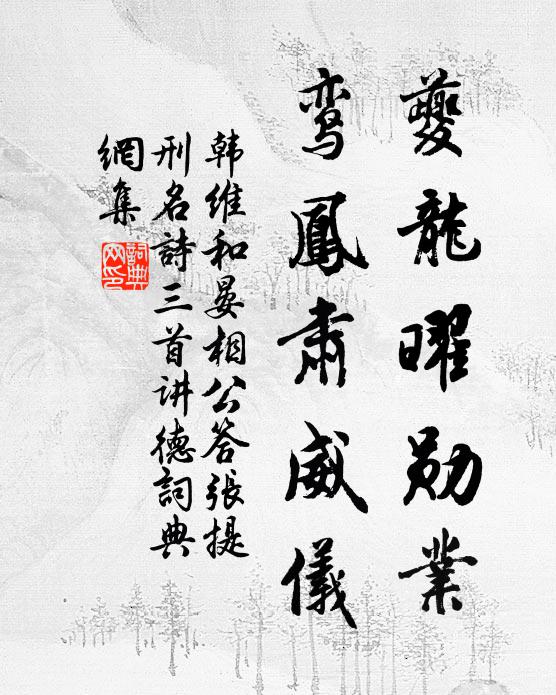 夔龍曜勋業
鸾鳳肃威儀
韩維和晏相公答張提
刑名詩三首讲德詞典
網集
詞典網印